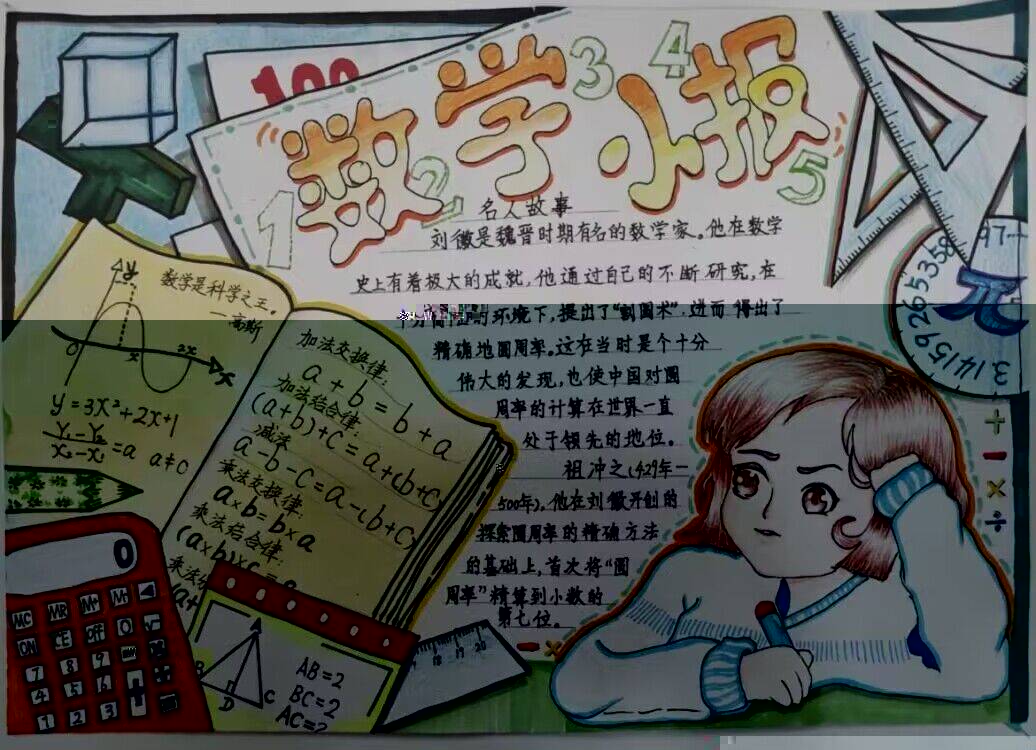 100
数学小报
1
2
3
4
5
名人故事
刘徽是魏晋时期有名的数学家。他在数学
史上有着极大的成就,他通过自己的不断研究,在
的环境下,提出了“割圆术”.进而 得出了
精确地圆周率。这在当时是个十分
伟大的发现,也使中国对圆
周率的计算在世界一直
处于领先的地位。
祖冲之(429年—
500年)。他在刘徽开创的
探索圆周率的精确方法
的基础上,首次将“圆
周率”精算到小数的
第七位。
数学是科学之王。
—高斯
y
0
x
2x
x
y=3x²+2x+1
Y₁-Y₂
X₂-X₁
=a a≠0
加法交换律:
a+b=b+a
加法结合律:
(a+b)+c=a+(b+c)
减法
a-b-c=a-(b+c)
乘法交换律:
a×b=b×a
乘法结合律:
(a×b)×c=a
乘法分
a+
0
MC MR M- M+
ON CE OFF 0 √
7 8 9
4 5 6
1 2 3
A
B
C
D
AB=2
BC=2
AC=?
18 19 20
- ×
+
-
×
÷
π
97-
3.14159265358